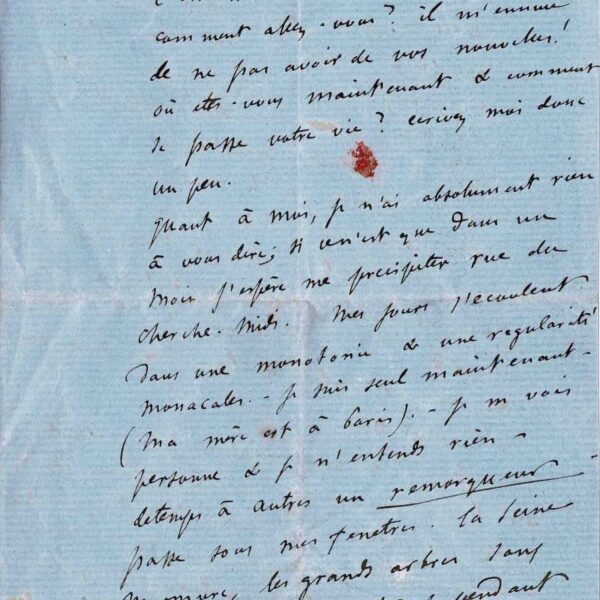 comment allez-vous? il m'ennuie
de ne pas avoir de vos nouvelles!
où êtes-vous maintenant & comment
se passe votre vie? écrivez moi donc
un peu.
quant à moi, je n'ai absolument rien
à vous dire; si ce n'est que dans un
mois j'espère me précipiter rue du
cherche-midi. Mes jours s'écoulent
dans une monotonie & une régularité
monacales. - je suis seul maintenant -
(ma mère est à Paris). - je ne vois
personne & je n'entends rien -
de temps à autres un remorqueur
passe sous mes fenêtres. la Seine
murmure, les grands arbres sans
pendant